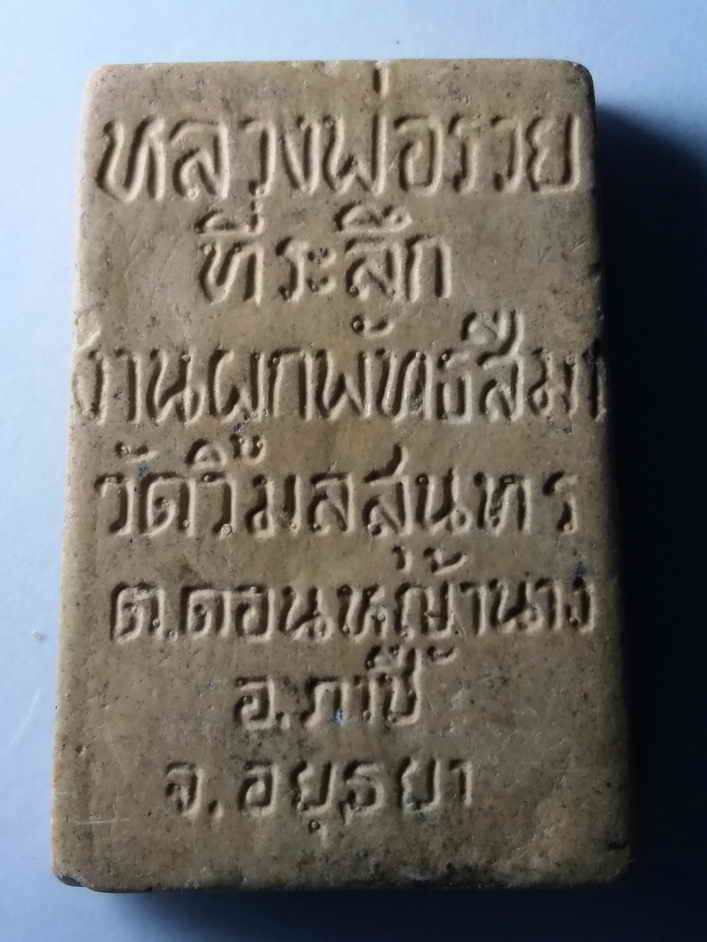 หลวงพ่อรวย
ที่ระลึก
งานผูกพัทธสีมา
วัดวิมลสุนทร
ต.ดอนหญ้านาง
อ.ภาชี
จ.อยุธยา